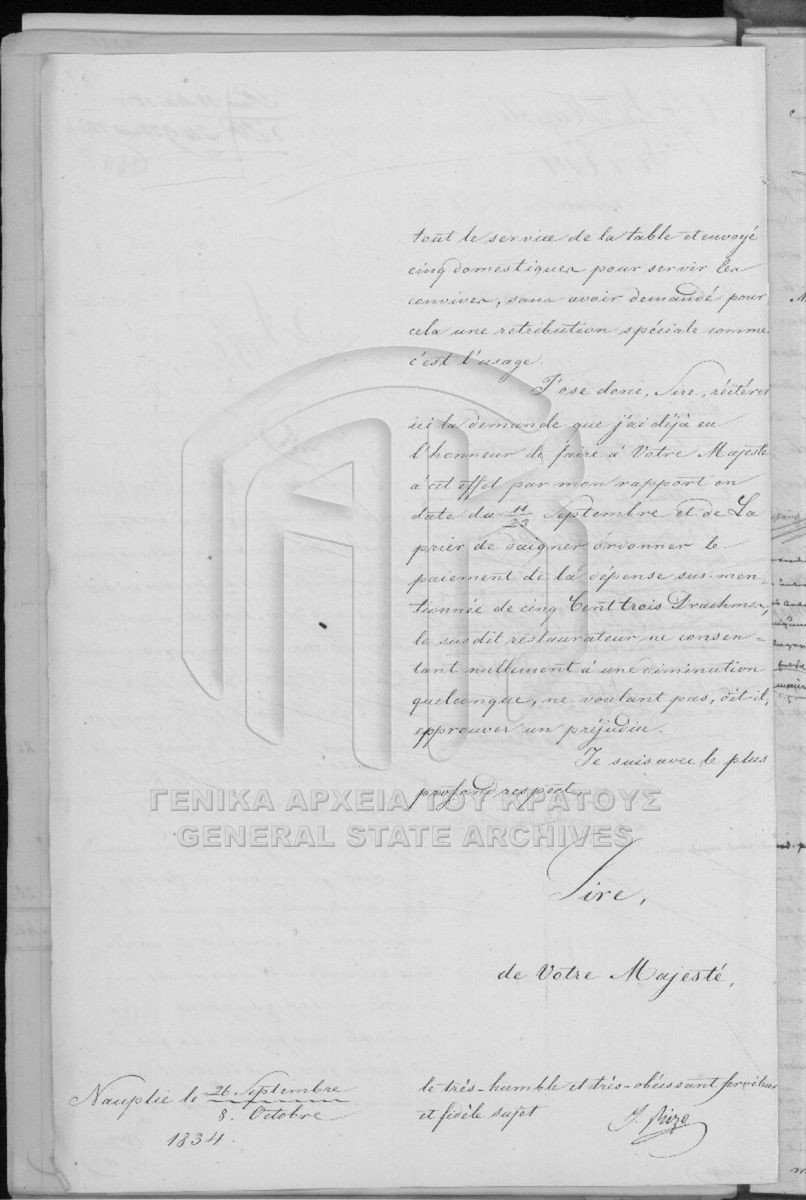 tout le service de la table et envoyé
cinq domestiques pour servir les
convives, sans avoir demandé pour
cela une retribution spéciale comme
c'est l'usage.
J'ose donc, Sire, réitérer
ici la demande que j'ai déjà eu
l'honneur de faire à Votre Majesté
à cet effet par mon rapport en
date du 11/23 Septembre et de La
prier de daigner ordonner le
paiement de la dépense sus-men-
tionnée de cinq Cent trois Drachmes,
le susdit restaurateur ne consen-
tant nullement à une diminution
quelconque, ne voulant pas, dit-il,
epprouver un préjudice.
Je suis avec le plus
profond respect,
ΓΕΝΙΚΑ ΑΡΧΕΙΑ ΤΟΥ ΚΡΑΤΟΥΣ
GENERAL STATE ARCHIVES
Sire,
de Votre Majesté,
le très-humble et très-obéissant serviteur
et fidèle sujet
J. Rizo
Nauplie le 26 Septembre
8. Octobre
1834.